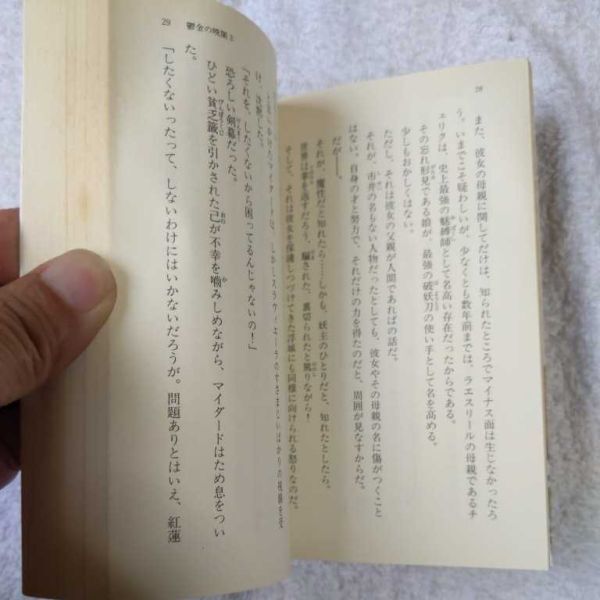 28
また、彼女の母親に関してだけは、知られたところでマイナス面は生じなかったろ
う。いまでこそ疑わしいが、少なくとも数年前までは、ラエスリールの母親であるチ
ェリクは、史上最強の魅縛師として名高い存在だったからである。
その忘れ形見である娘が、最強の破妖刀の使い手として名を高める。
少しもおかしくはない。
ただし、それは彼女の父親が人間であればの話だ。
それが、市井の名もない人物だったとしても、彼女やその母親の名に傷がつくこと
はない。自身の才と努力で、それだけの力を得たのだと、周囲が見なすからだ。
だが――。
それが、魔性だと知れたら……しかも、妖主のひとりだと、知れたとしたら。
世界は掌を返すだろう、騙された、裏切られたと罵りながら！
そして、それは彼女を保護しつづけてきた浮城にも同様に向けられる怒りなのだ。
29 鬱金の暁闇 2
け、沈黙した。
「それを、したくないから困ってるんじゃないの！」
恐ろしい剣幕だった。
ひどい貧乏籤を引かされた己が不幸を噛みしめながら、マイダードはため息をつい
た。
「したくないったって、しないわけにはいかないだろうが。問題ありとはいえ、紅蓮